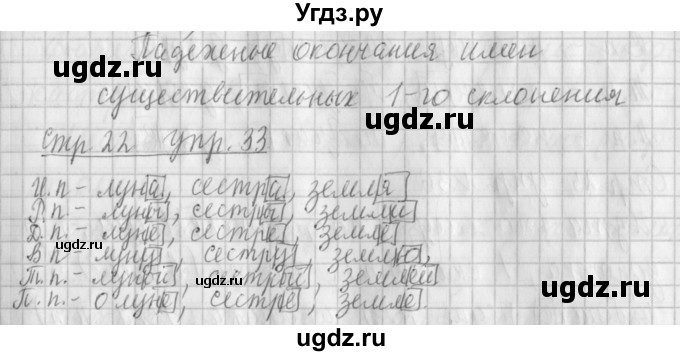 Угдз.ру
Падежные окончания имен
существительных 1-го склонения
Стр 22 упр. 33
И.п - луна, сестра, земля
Р.п. - луны, сестры, земли
Д.п. - луне, сестре, земле
В.п - луну, сестру, землю,
Т.п. - луной, сестрой, землей
П.п. - о луне, сестре, земле.
ugdz.ru
ugdz.ru
ugdz.ru
ugdz.ru
ugdz.ru
ugdz.ru
ugdz.ru
ugdz.ru
ugdz.ru
ugdz.ru
ugdz.ru